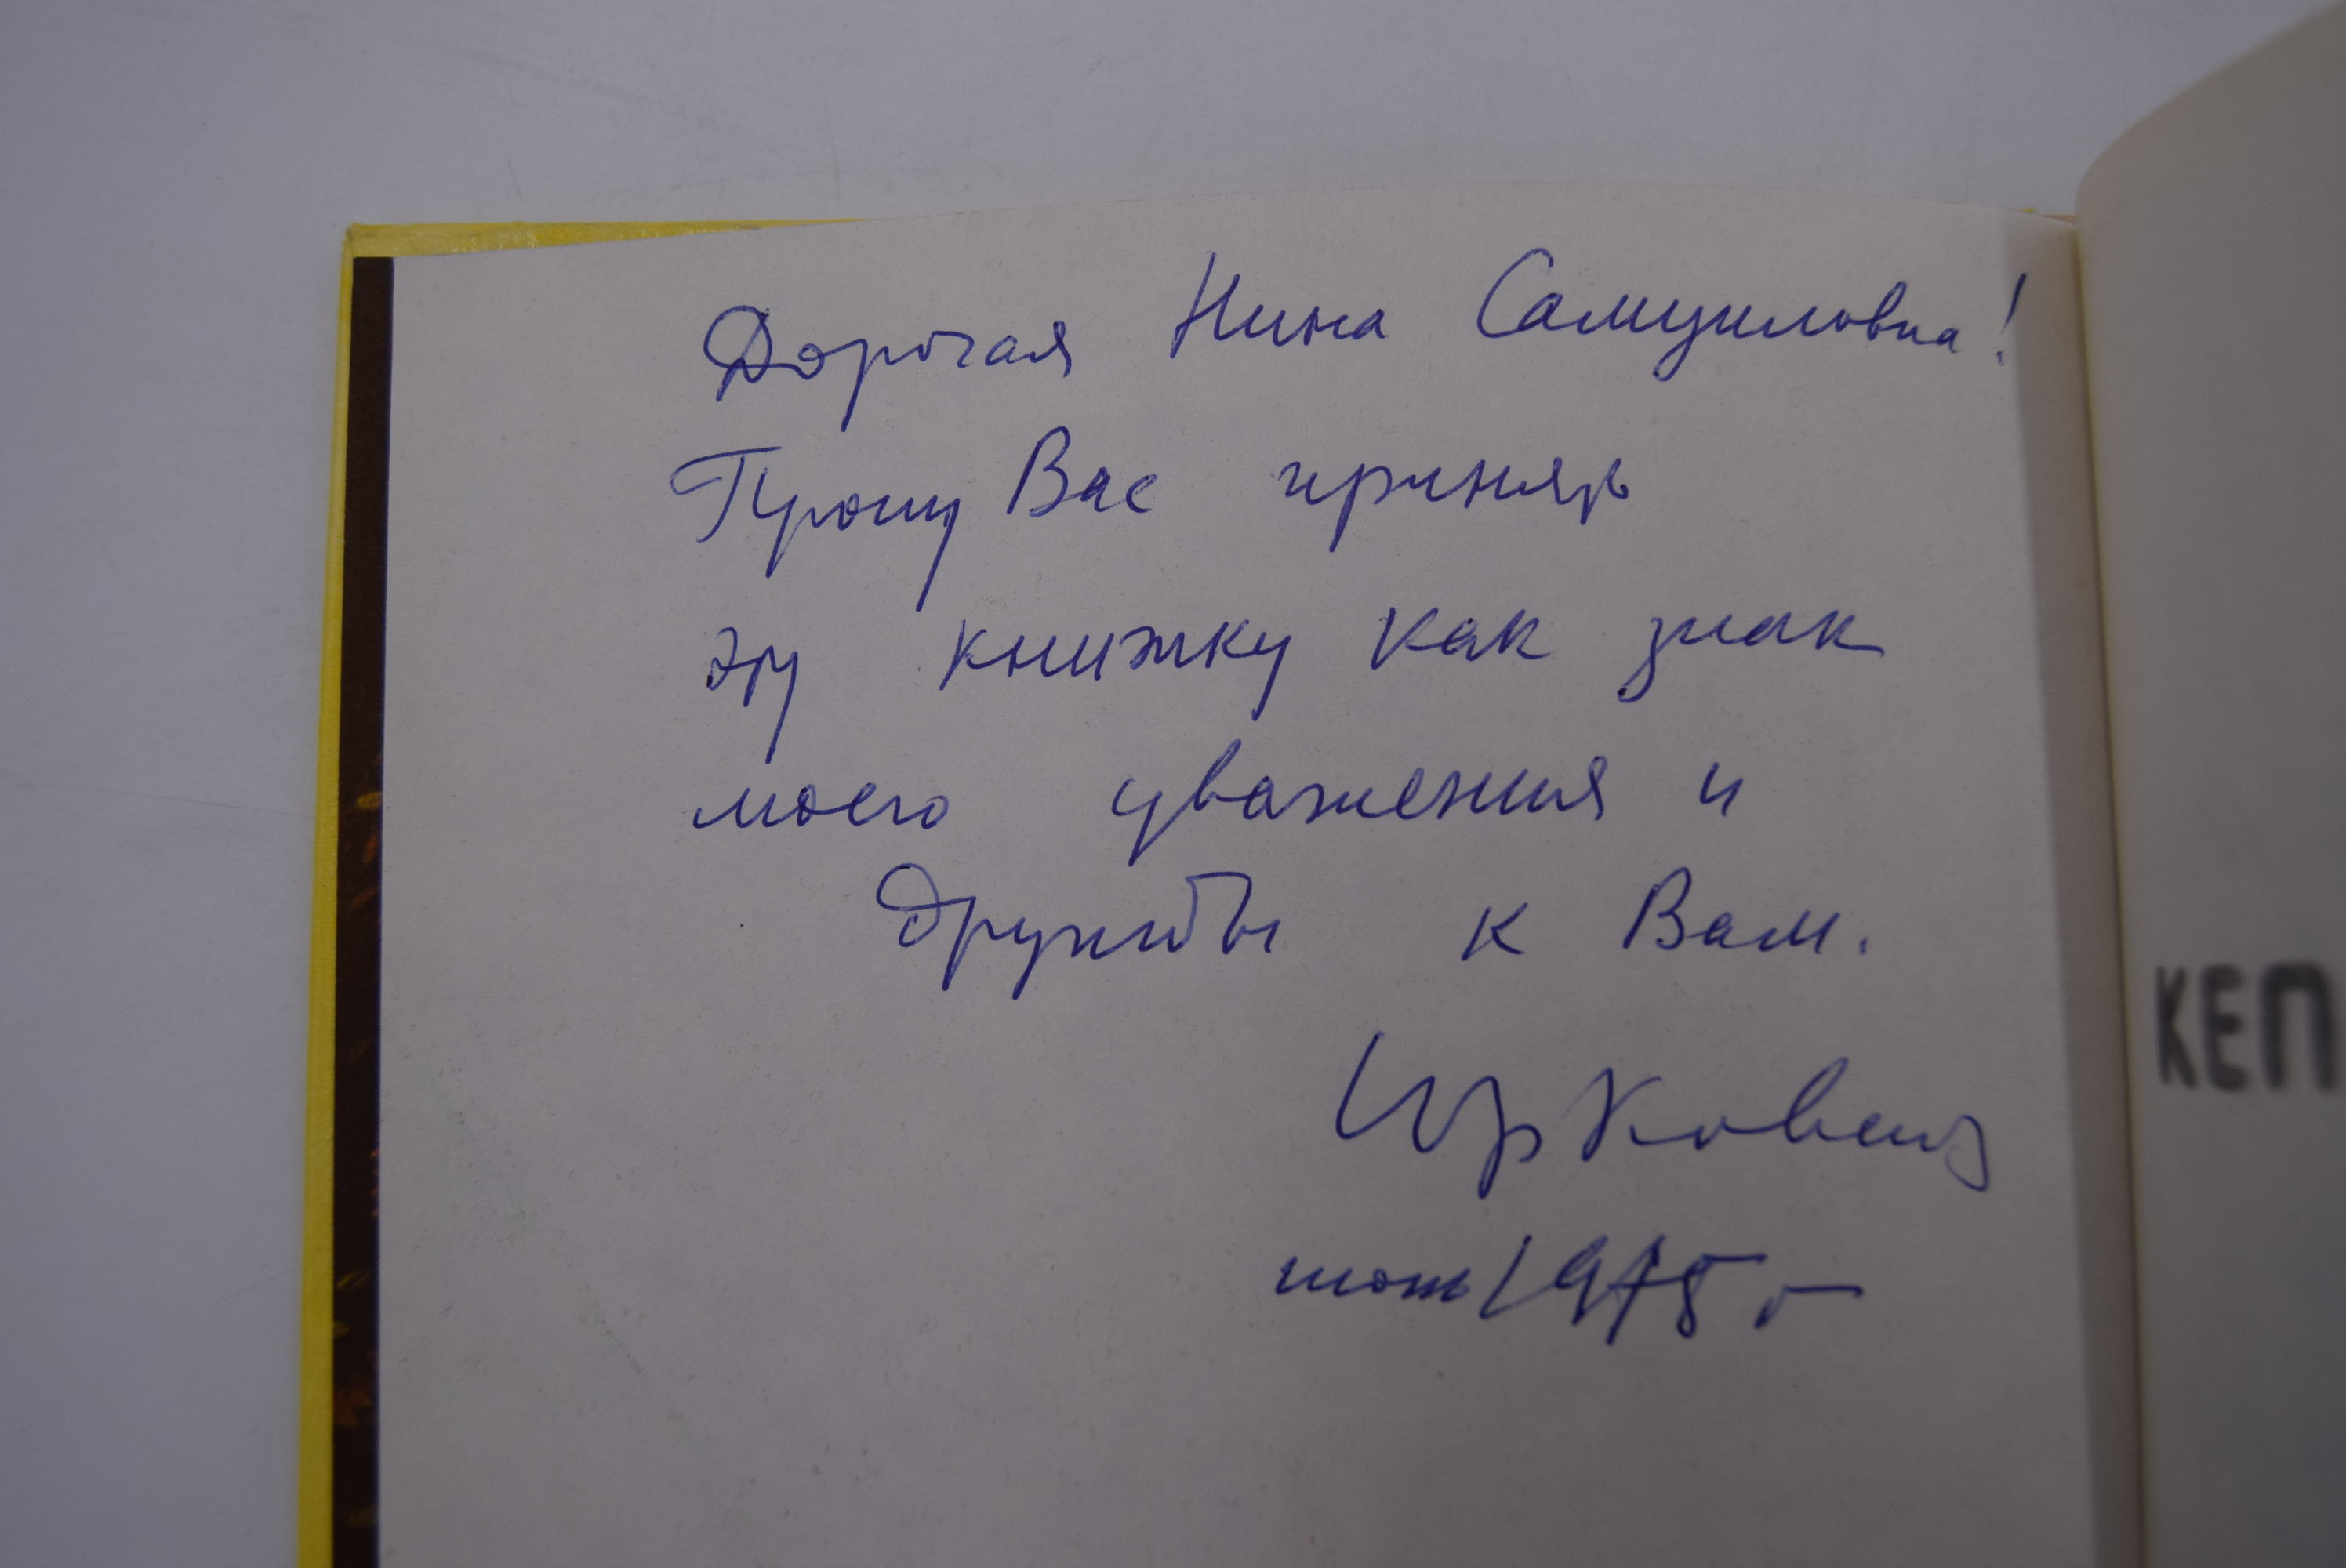 Дорогая Нина Самуиловна!
Прошу Вас принять
эту книжку как знак
моего уважения и
дружбы к Вам.
1975 г
КЕП